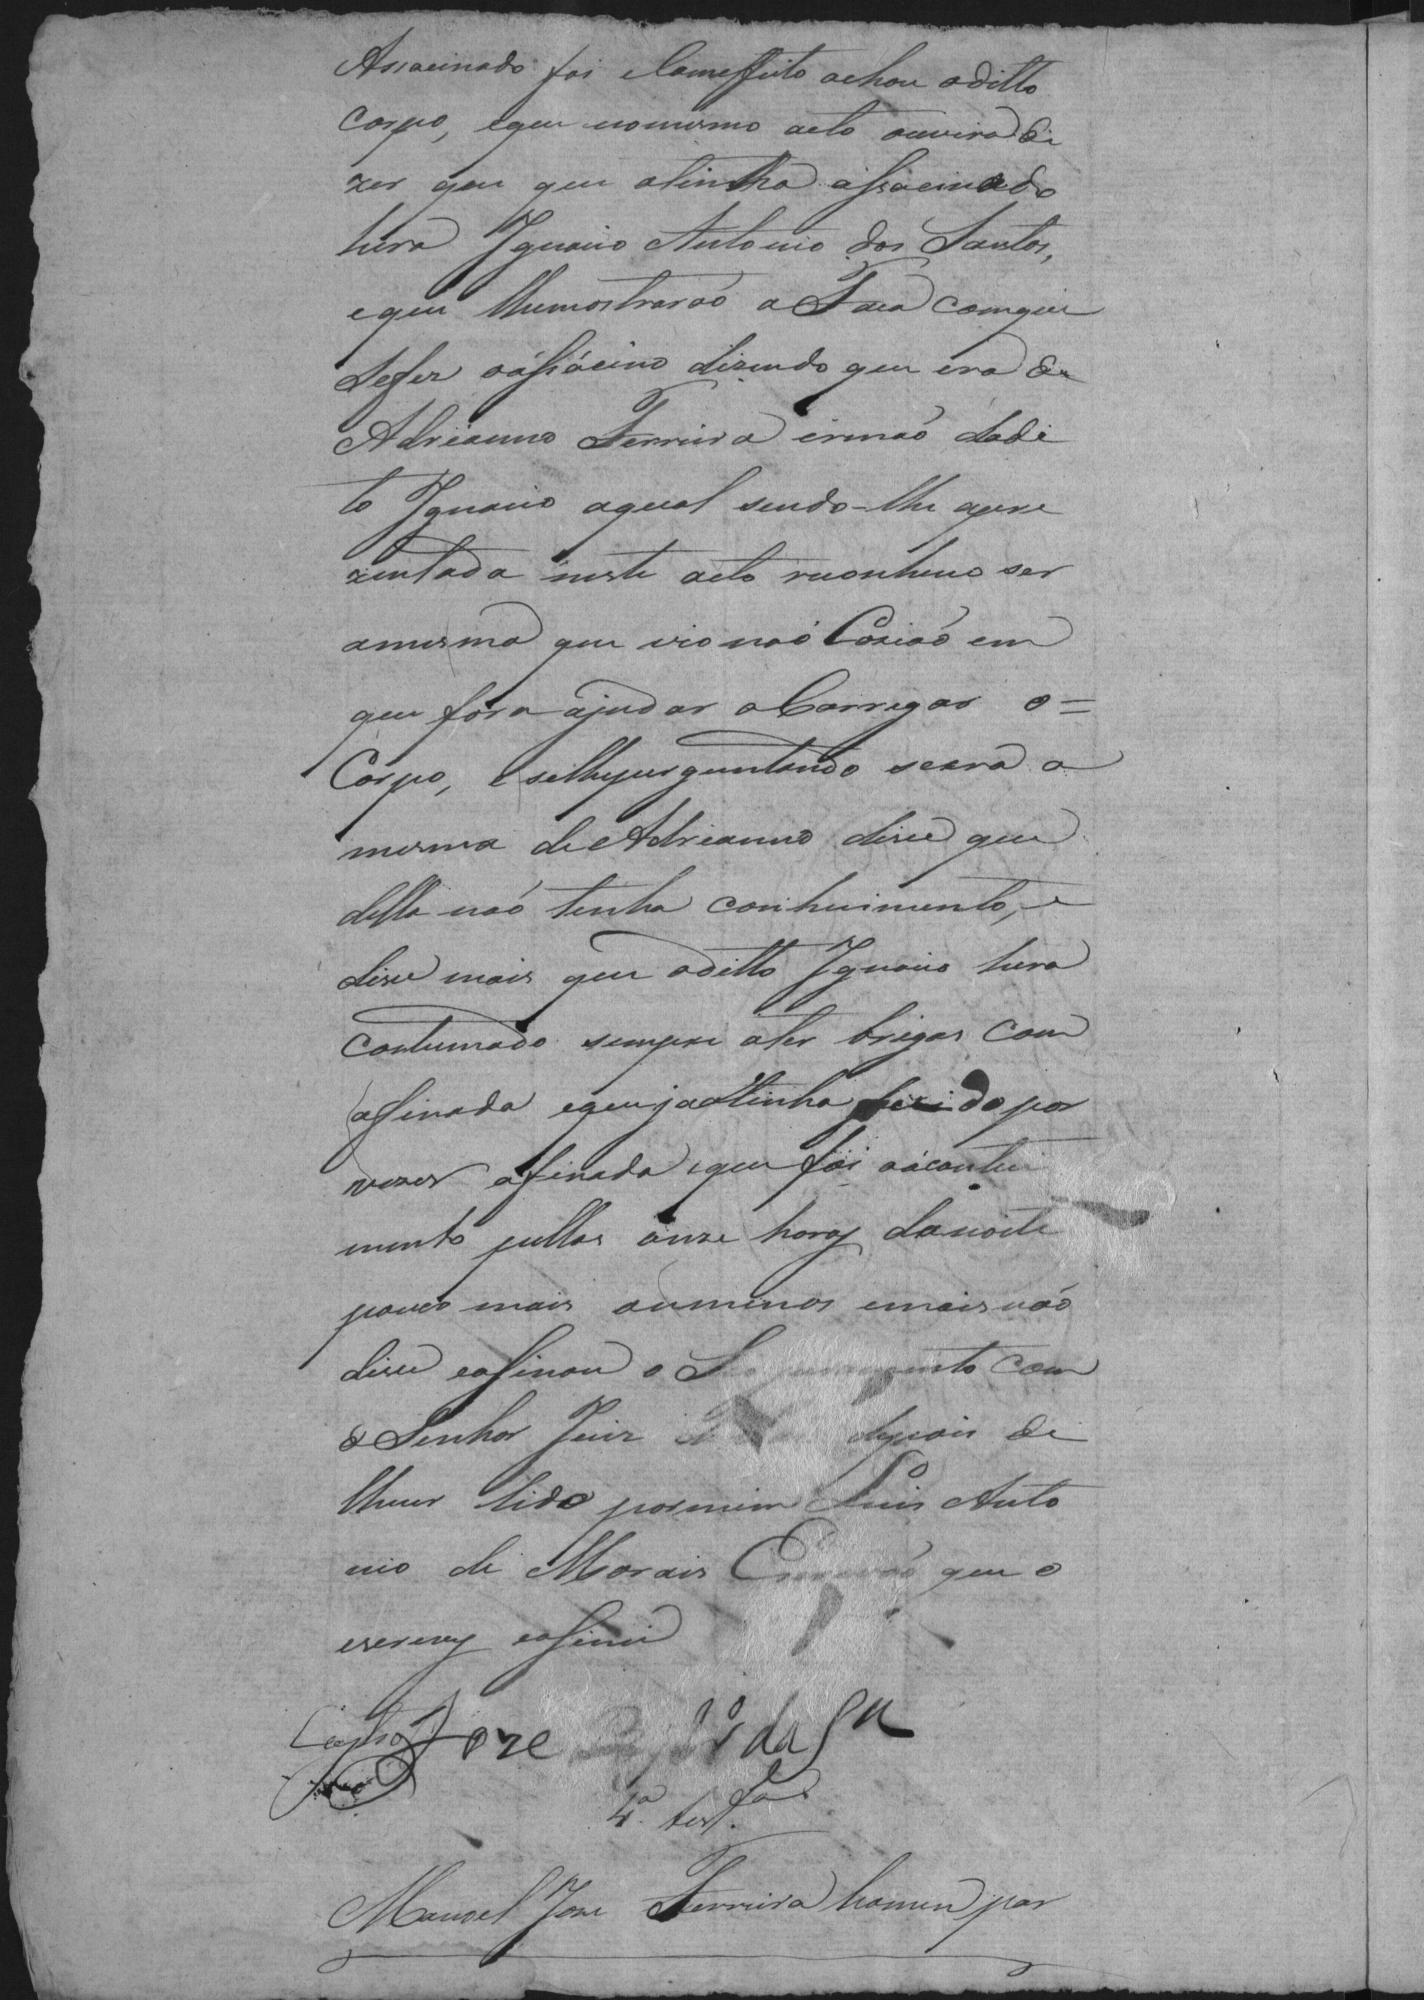 Assacinado foi e Comeffeito achou oditto
Corpo, eque nomesmo acto ouvira di
zer que quem atinha assacinado
hera Ignacio Antonio dos Santos,
eque lhemostraraó a Faca comque
Sefes oássácino dizendo que era de
Adrianno Ferreira irmaó dodi
to Ignacio aqual sendo-lhe apre
zentada neste acto reconheceo ser
amesma que vio naó Caziaó em
que fora ajudar a Carregar o=
Corpo, e selheperguntando seera a
mesma de Adrianno dice que
della naó tenha conhecimento, e
dice mais que oditto Ignacio hera
Costumado sempre ater brigas com
afinada eque ja atinha ferido por
vezes afinada, eque foi oácontei
mento pellas onze horas danoite
pouco mais oumenos emais náo
dice easinou o com
o Senhor Juiz depois de
lheser lido pormim Luis Anto
nio de Morais Escrivaó que o
escrevy easiney
Joze da Sa
4ª testª
Manoel Joze Ferreira homem par